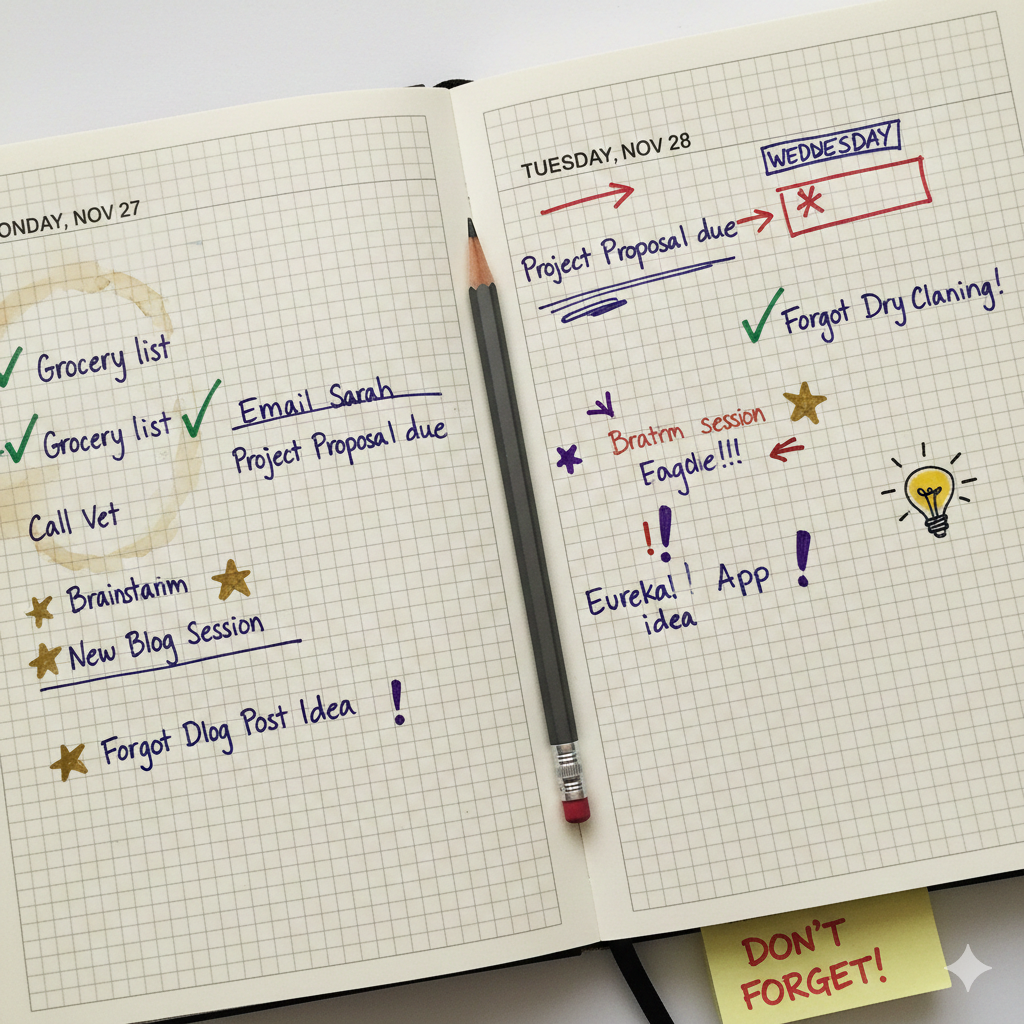 ONDAY, NOV 27
Grocery list
Grocery list
Email Sarah
Project Proposal due
Call Vet
Brainstarim
New Blog Session
Forgot Dlog Post Idea !
TUESDAY, NOV 28
WEDDESDAY
Project Proposal due
Forgot Dry Claning!
Bratrm session
Eagdie!!!
!!
Eureka! ! App !
idea
DON'T
FORGET!